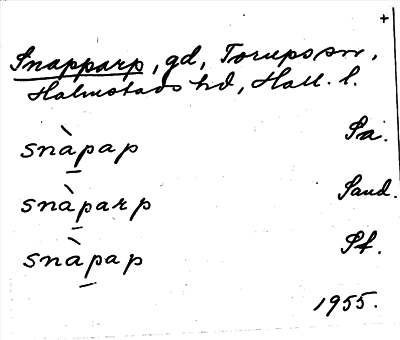 +
Snapparp, gd, Torups sn,
Halmstads hd, Hall. l.
snàpap Sa.
snàparp Sand.
snàpap Sf.
1955.